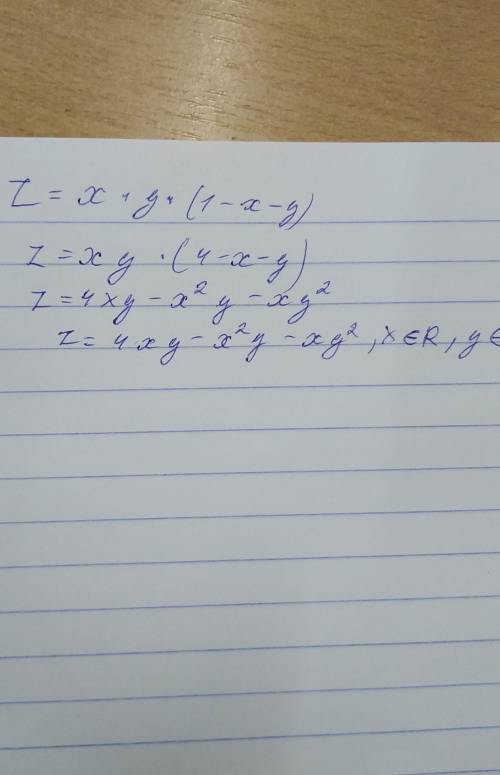 Z = x · y · (1 - x - y)
z = x y · (4 - x - y)
z = 4xy - x² y - xy²
z = 4xy - x²y - xy², x ∈ R, y ∈